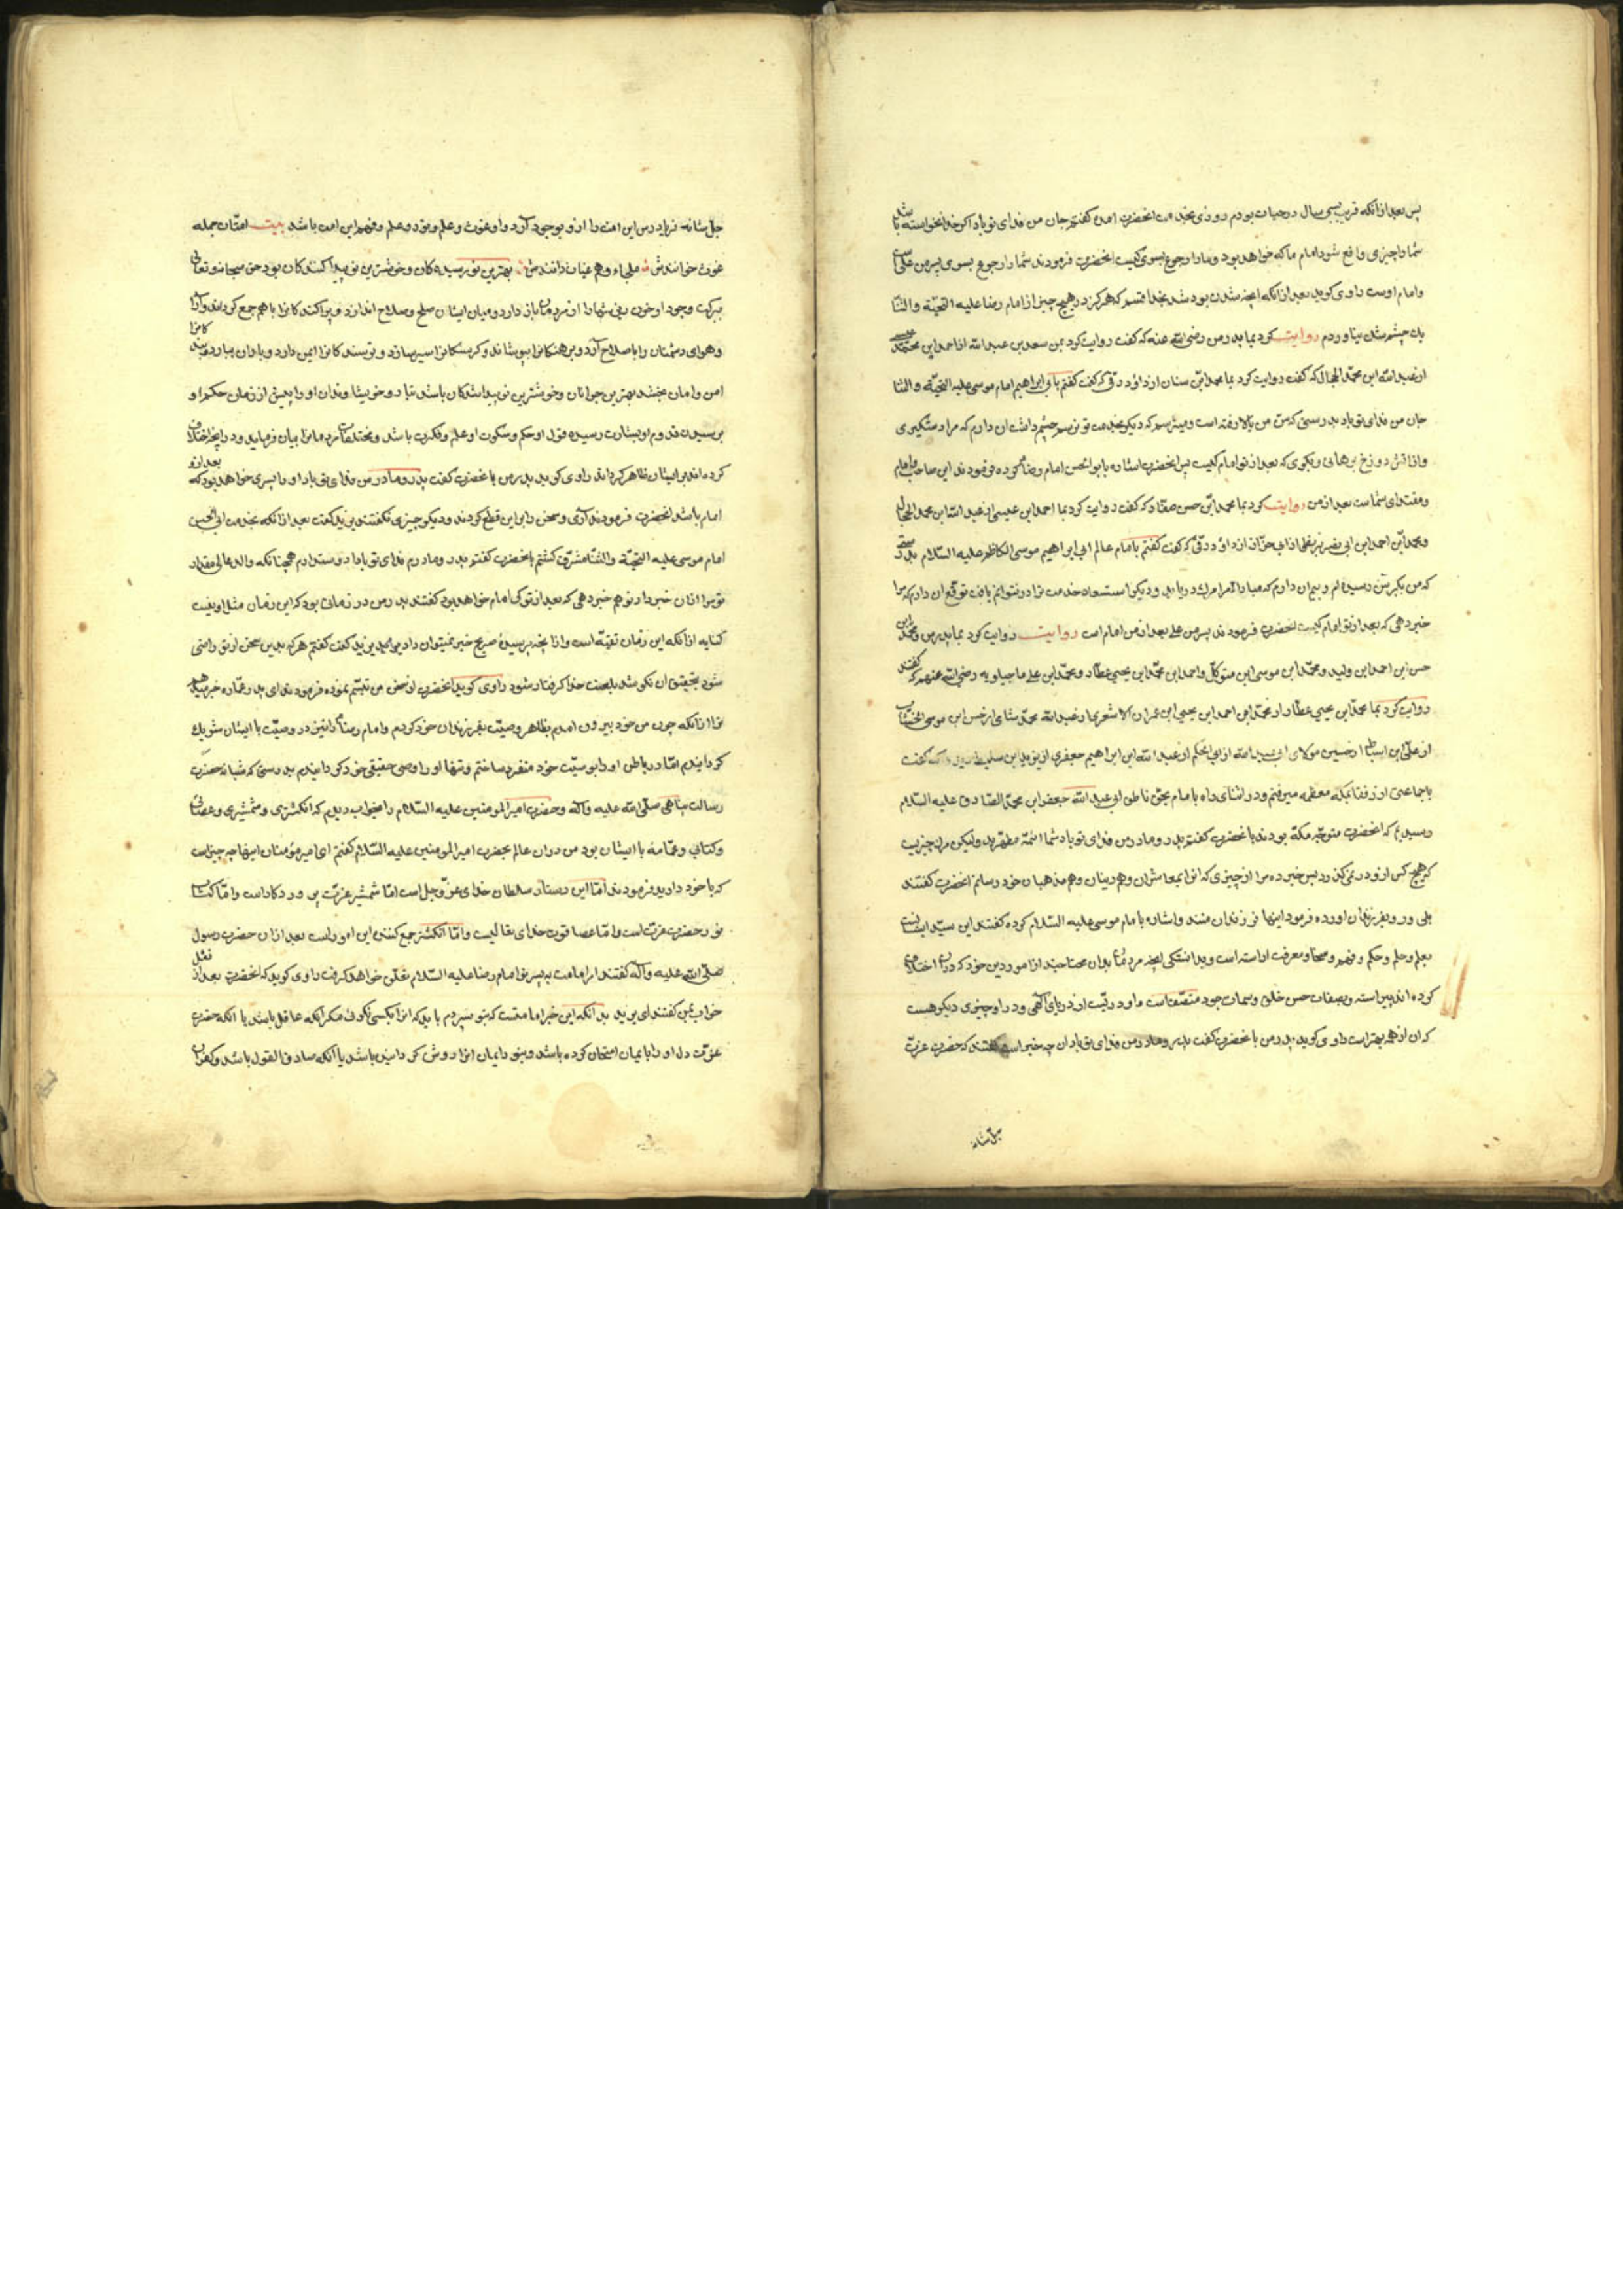 پس بعد از آنکه قریب بسی سال در حیات بودم روزی بخدمت آنحضرت آمدم گفتم جان من فدای تو باد اگر خدا نخواسته باشد
شما را چیزی واقع شود امام ما که خواهد بود و ما را رجوع بسوی کیست آنحضرت فرمودند شما را رجوع بسوی پسر من علی است
و امام اوست راوی کوید بعد از آنکه آنچه شدن بود شد بخدا قسم که هرکز در هیچ چیز از امام رضا علیه التحیّة والثنا
یک چشم شک نیاوردم روایت کرد بما پدر من رضی الله عنه که کفت روایت کرد بمن سعد بن عبد الله از احمد ابن محمد عیسی
از عبد الله ابن محمّد الحجال که کفت روایت کرد بما محمد ابن سنان از داود رقی که کفت کفتم بابی ابراهیم امام موسی علیه التحیّة والثنا
جان من فدای تو باد بدرستی که سن من بالا رفته است و میترسم که دیکر بخدمت تو نرسم چشم داشت آن دارم که مرا دستکیری
و از آتش دوزخ برهانی و بکوی که بعد از تو امام کیست پس آنحضرت اشاره بابو الحسن امام رضا کرده فرمودند این صاحب و امام
و مقتدای شماست بعد از من روایت کرد بما محمد ابن حسن صفار که کفت روایت کرد بما احمد ابن عیسی از عبد الله ابن محمد الحجال
و محمد ابن احمد ابن ابی نصر بزنطی از ابی از داود رقی که کفت کفتم بامام عالم ابی ابراهیم موسی الکاظم علیه السّلام بدرستی
که من بکبر سن رسیده‌ام و بیم آن دارم که مبادا مرا مرک دریابد و دیکر استسعاد خدمت ترا در نتوانم یافت توقع آن دارم که مرا
خبر دهی که بعد از تو امام کیست آنحضرت فرمودند پسر من علی بعد از من امام است روایت روایت کرد بما پدر من و محمد ابن
حسن ابن احمد ابن ولید و محمّد ابن موسی ابن متوکل و احمد ابن محمّد ابن یحیی عطار و محمّد ابن علی ماجیلویه رضی الله عنهم که کفتند
روایت کرد بما محمّد ابن یحیی عطار از محمّد ابن احمد ابن یحیی ابن عمران الاشعری از عبد الله محمّد شامی از حسن ابن موسی الخشاب
از علی ابن اسباط از حسین مولای ابی عبد الله از ابی الحکم از عبد الله ابن ابراهیم جعفری از یزید ابن سلیط که کفت
با جماعتی از رفقا بمکه معظمه میرفتم و در اثنای راه با امام بحق ناطق ابی عبد الله جعفر ابن محمّد الصّادق علیه السّلام
رسیدیم که آنحضرت متوجه مکّه بودند بآنحضرت کفتم پدر و مادر من فدای تو باد شما ائمّه مطهّرید ولیکن مرک چیزیست
که هیچ کس از و در نمی‌کذرد پس خبر ده مرا از چیزی که آنرا بمعاشران و هم دینان و هم مذهبان خود رسانم آنحضرت کفتند
بلی و رو بفرزندان آورده فرمود اینها فرزندان منند و اشاره بامام موسی علیه السّلام کرده کفتند این سیّد ایشان است
بعلم و حلم و حکم و فهم و سخا و معرفت آراسته است و بدانستکی آنچه مردمان بدان محتاجند از امور دین خود که در آن اختلاف
کرده اند پیراسته و بصفات حسن خلق و سمات جود متصّف است و او دریست از درهای الهی و در او چیزی دیکر هست
که آن از همه بهتر است راوی کوید پدر من بآنحضرت کفت پدر و مادر من فدای تو باد آن چه خیر است کفتند که حضرت عزّت
جل شانه
جل شانه فریاد رس این امت را از و بوجود آورد و او غوث و علم و نور و علم و فهم این امت باشد بیت امتان جمله
غوث خوانندش ملجاء و هم غیاث دانندش بهترین نو رسیده کان و خوشترین نو پیدا کنندکان بود حق سبحانه و تعالی
ببرکت وجود او خون ریزیها را از مردمان باز دارد و میان ایشان صلح و صلاح اندازد و پراکنده کانرا با هم جمع کرداند و آرا
و هوای دشمنان را باصلاح آرد و برهنکانرا بپوشاند و کرسنکانرا سیر سازد و ترسنده کانرا ایمن دارد و باران بیارد بنده کانرا
امن و امان بخشد بهترین جوانان و خوشترین نو پیدا شدکان باشد تبار و خویشاوندان او را پیش از زمان حکم او
برسیدن قدوم او بشارت رسیده قول او حکم و سکوت او علم و فکرت باشد و مختلفات مردمانرا بیان فرماید و در آنچه اختلاف
کرده اند بر ایشان ظاهر کرداند راوی کوید پدر من بآنحضرت کفت پدر و مادر من فدای تو باد او را پسری خواهد بود که بعد از و
امام باشد آنحضرت فرمودند آری و سخن را بر این قطع کردند و دیکر چیزی نکفتند یزید کفت بعد از آنکه بخدمت ابی الحسن
امام موسی علیه التحیّة والثنا مشرّف کشتم بآنحضرت کفتم پدر و مادرم فدای تو بادا دوست دارم همچنانکه والد عالی مقدار
تو مرا از آن خبر داد تو هم خبر دهی که بعد از تو کی امام خواهد بود کفتند پدر من در زمانی بود که این زمان مثل او نیست
کنایه از آنکه این زمان تقیّه است و از آنچه پرسیدهٔ صریح خبر نمیتوان داد یزید کفت کفتم هرکه بدین سخن از تو راضی
شود بتحقیق آن نکوشد بلعنت خدا کرفتار شود راوی کوید آنحضرت از سخن من تبسّم نموده فرمودند ای پدر عماره خبر میدهم
ترا از آنکه چون من خود بیرون آمدم بظاهر وصیّت بفرزندان خود کردم و امام رضا را نیز در وصیّت با ایشان شریک
کردانیدم امّا در باطن او را بوصیّت خود منفرد ساختم و تنها او را وصی حقیقی خود کردانیدم بدرستی که شبانه حضرت
رسالت پناهی صلّی الله علیه وآله و حضرت امیر المومنین علیه السّلام را بخواب دیدم که انکشتری و شمشیری و عصائی
و کتابی و عمّامه با ایشان بود من در آن عالم بحضرت امیر المومنین علیه السّلام کفتم ای امیر مؤمنان اینها چه چیز است
که با خود دارید فرمودند امّا این دستار سلطان خدای عزّ وجل است امّا شمشیر عزّت پروردکار است و امّا کتاب
نور حضرت عزّت است و امّا عصا قوت خدای تعالیست و امّا انکشتر جمع کننده این امور است بعد از آن حضرت رسول
صلّی الله علیه وآله کفتند امر امامت به پسر تو امام رضا علیه السّلام تعلّق خواهد کرفت راوی کوید که آنحضرت بعد از نقل
خواب بمن کفتند ای یزید بدانکه این خبر امانتیست که بتو سپردم باید که آنرا بکسی نکوئی مکر آنکه عاقل باشد یا آنکه حضرت
عزّت دل او را بایمان امتحان کرده باشد و بنور ایمان آنرا روشن کردانیده باشد یا آنکه صادق القول باشد و کفران